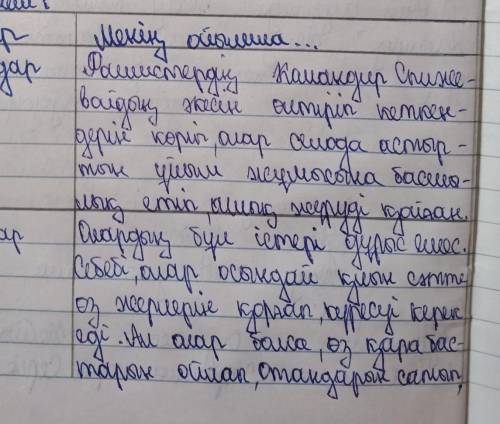 р Менің ойымша...
дар Фашистердің Командир Спиже-
вайдың жесін өлтіріп кеткен-
дерін көріп, олар селода астыр-
тын ұйым жұмысына басшы-
лық етіп, жүруді қойған.
ар Олардың бұл істері дұрыс емес.
Себебі, олар осындай қиын сәтте
өз жерлерін қорғап, күресуі керек
еді. Ал олар болса, өз қара бас-
тарын ойлап, Отандарын сатып,